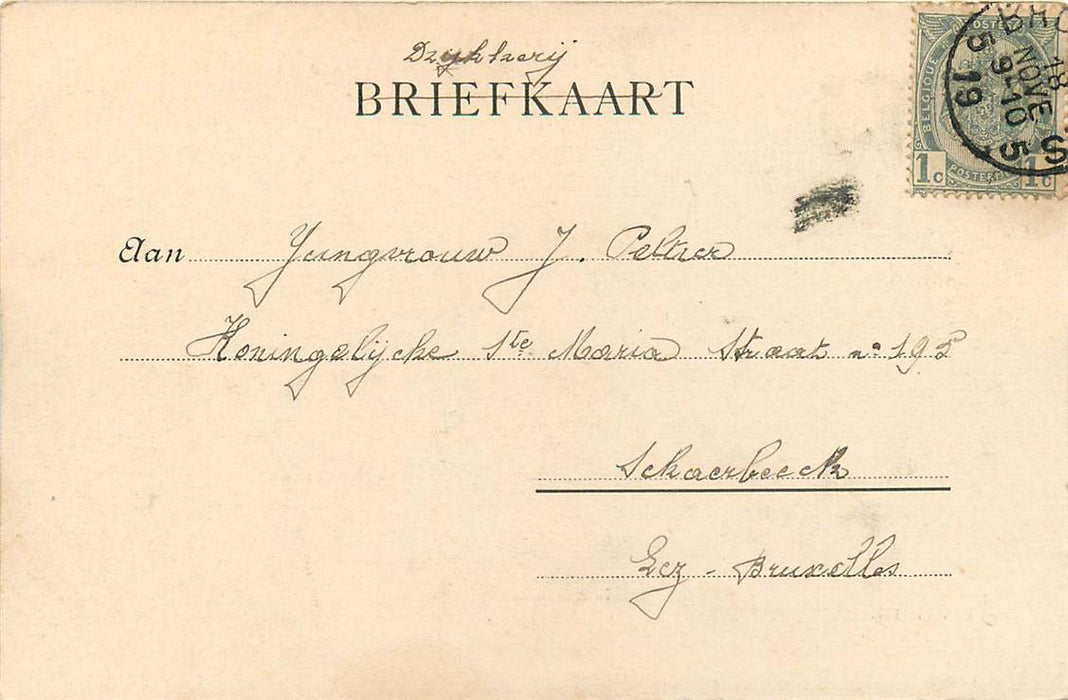 BRIEFKAART
Aan Jungvrouw J. Peltier
Koningelijcke Ste Maria Straat no 195
Schaerbeeck
Lez - Bruxelles
BELGIQUE
POSTER
1c 1c
18
NOVE
9-10
5
19
5
S